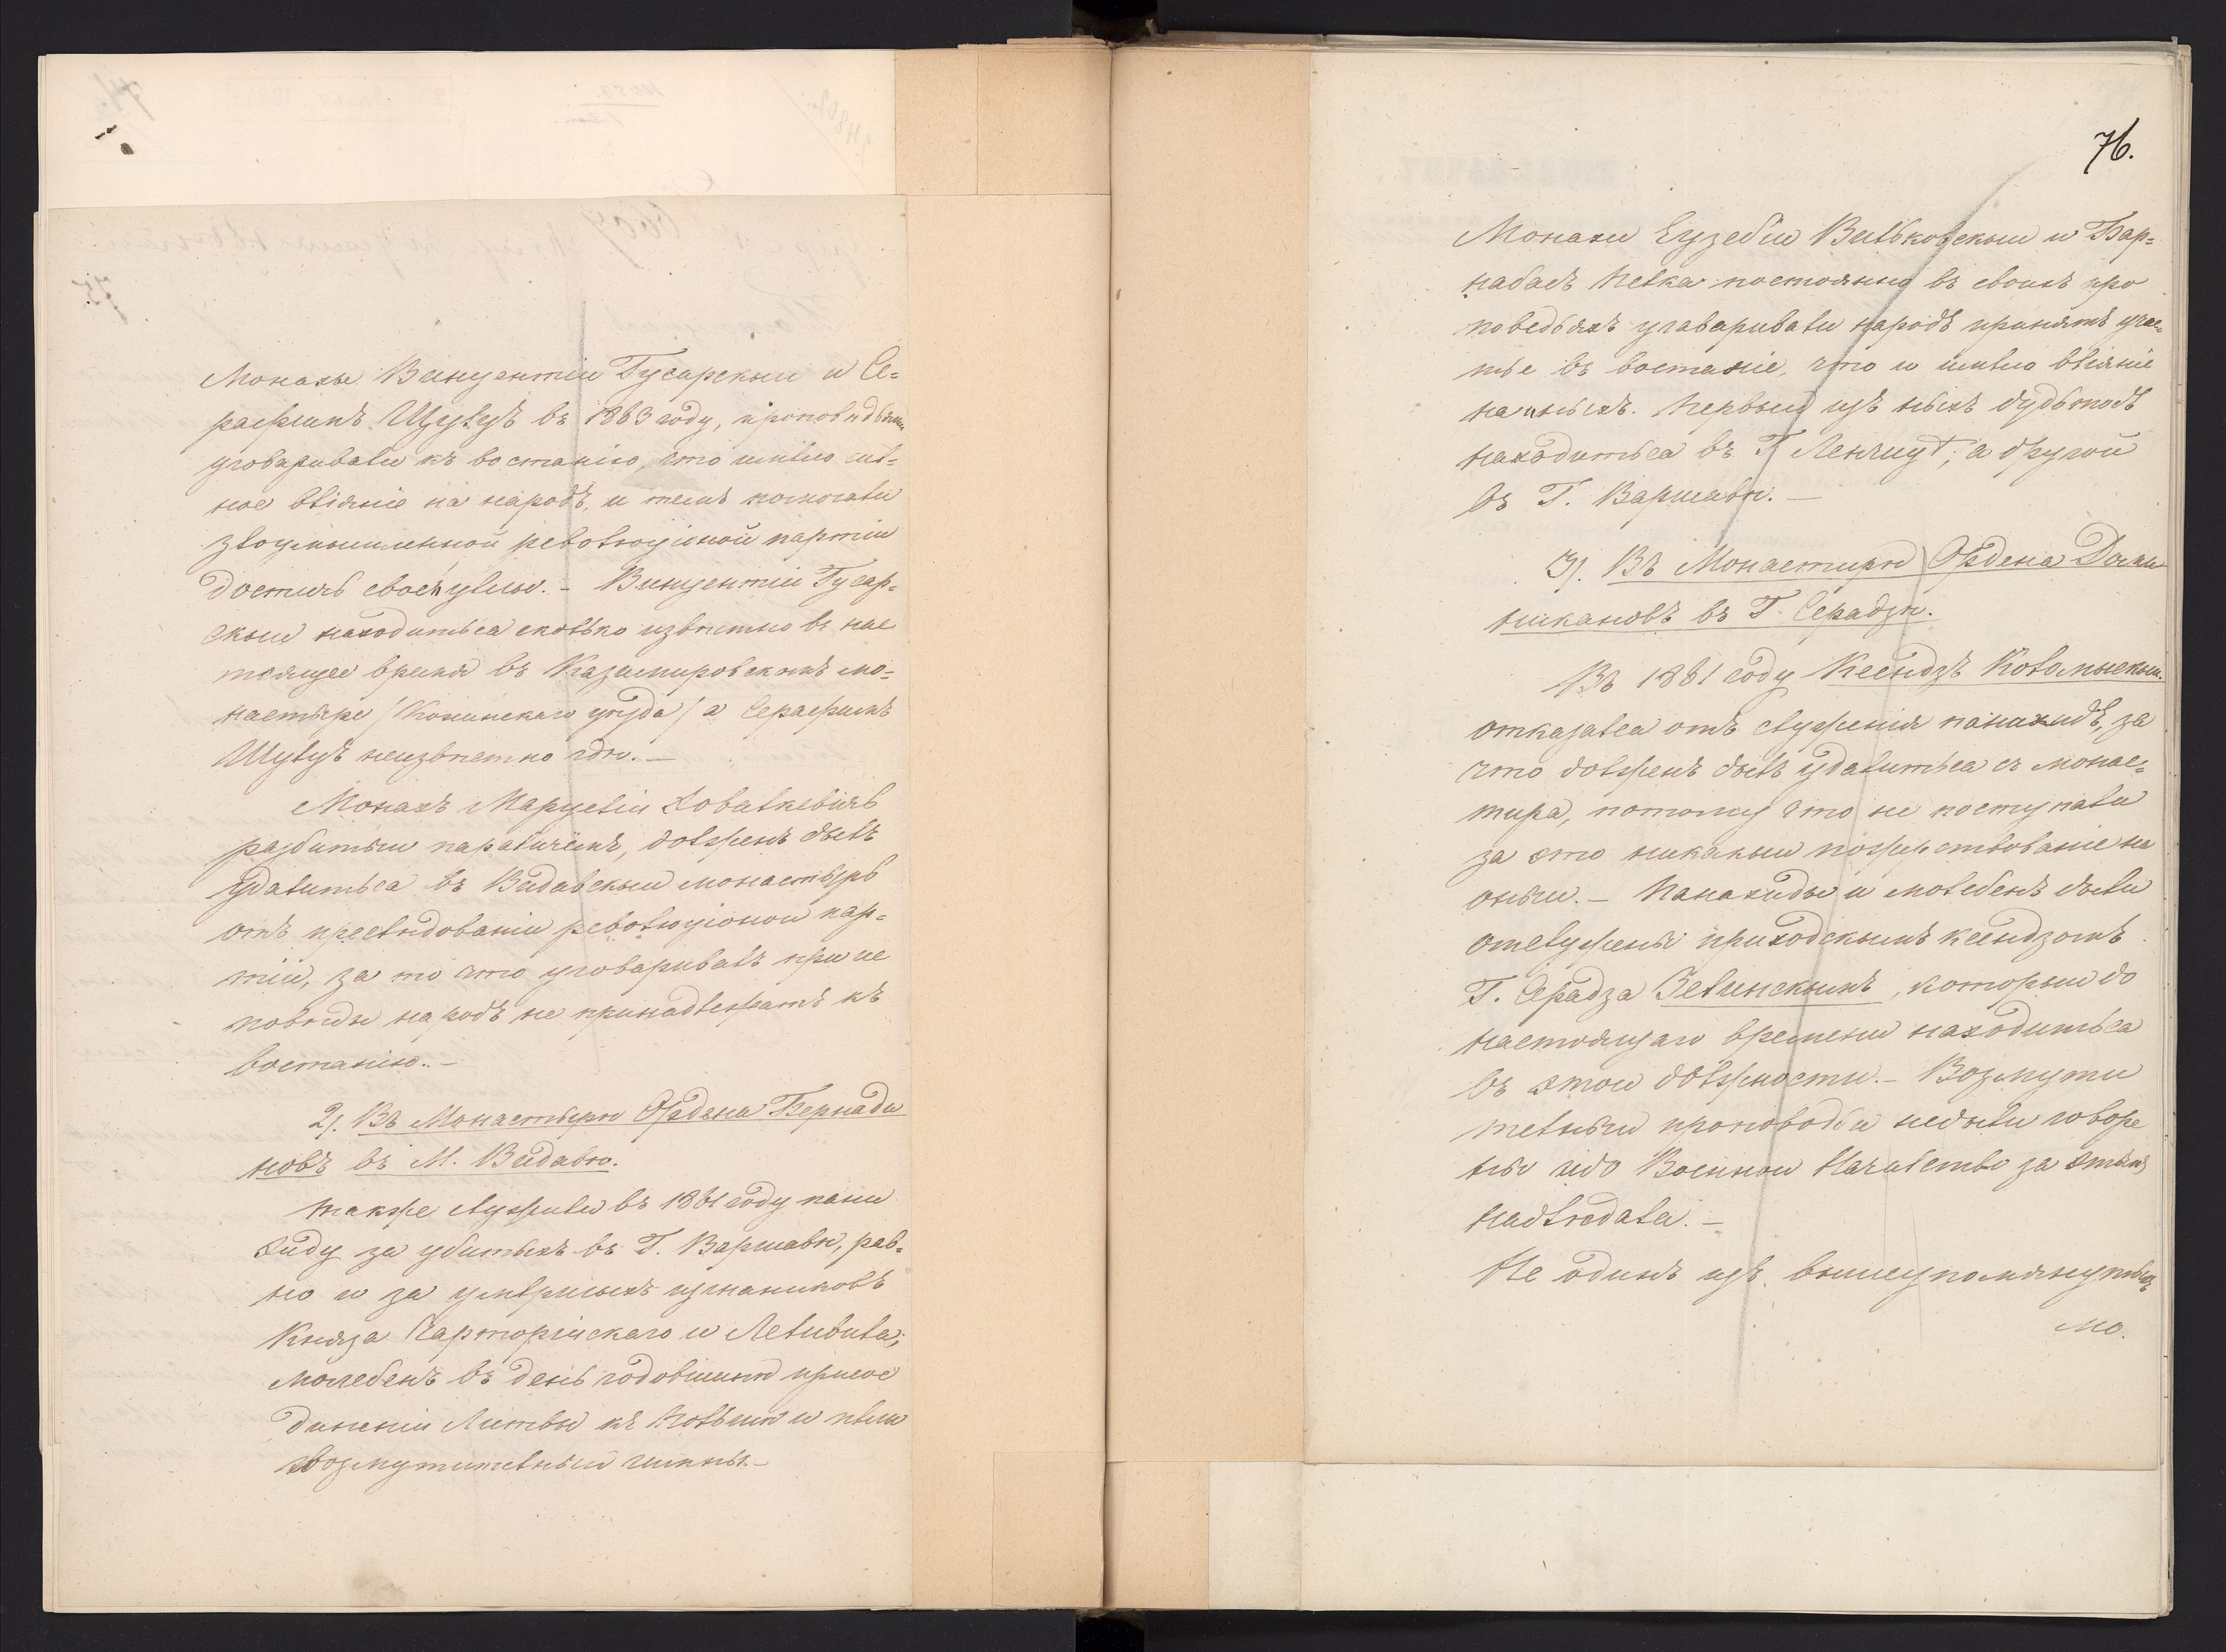 Монахы Винцентіи Гусарскыи и Се=
рафинъ Шулцъ въ 1863 году, проповѣдьями
уговаривали къ востанію, что имѣло сил=
ное вліяніе на народъ, и темъ помогали
злоумышленной револлюціоной партіи
достичь своей цѣлы. – Винцентіи Гусар=
скыи находитьса сколько извѣстно въ нас
тоящее время въ Казимировскомъ мо=
настыре /Конинскаго уѣзда/ а Серафинъ
Шулцъ неизвѣстно гдѣ. —
Монахъ Марцеліи Ховалкевичь
разбитыи параличемъ, долженъ былъ
удалитьса въ Видавскыи монастырь
отъ преслѣдованіи револлюціонои пар=
тіи, за то что уговаривалъ при ис
повѣды народъ не принадлежатъ къ
востанію. –
2/. Въ Монастырѣ Ордена Бернади
новъ въ М. Видавѣ.
также служили въ 1861 году пани
хиду за убитыхъ въ Г. Варшавѣ, рав=
но и за умѣршыхъ изганиковъ
Князa Чарторійскаго и Лелевела;
молебенъ въ день годовшины присое
диненіи Литвы къ Польши и пѣли
возмутителныи гимны. –
76.
Монахи Еузебіи Вильковскыи и Бар=
набасъ Пелка постоянно въ своихъ про
поведьяхъ угаваривали народъ принятъ учас=
тье въ востаніе, что и имѣло вліяніе
на иныхъ. Первыи изъ ныхъ будьтобъ
находитьса въ Г. Ленчицѣ, а другой
въ Г. Варшавѣ. —
3/. Въ Монастирѣ Ордена Доми
никановъ въ Г. Серадзѣ.
Въ 1861 году Ксендзъ Коломыскыи
отказалса отъ служенія панахидъ, за
что долженъ былъ удалитьса съ монас=
тира, потому что не поступали
за это никакыи пожертвованіе на
оныи. – Панахиды и молебенъ были
отслужены приходскымъ ксендзомъ
Г. Серадза Зелинскымъ, которыи до
настоящаго времени находитьса
въ этои должности. – Возмути
телныи проповоды небыли говоре
ны ибо Военнои Началство за этымъ
надлюдала. –
Не одинъ изъ вышеупомянутыхъ
мо.